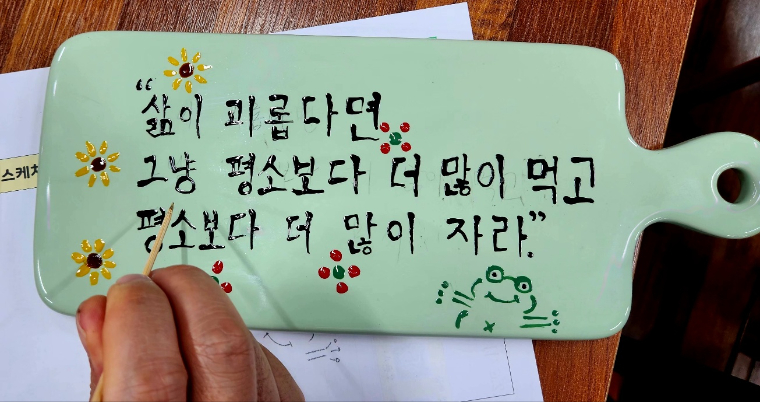 스케치
“삶이 괴롭다면
그냥 평소보다 더 많이 먹고
평소보다 더 많이 자라.”